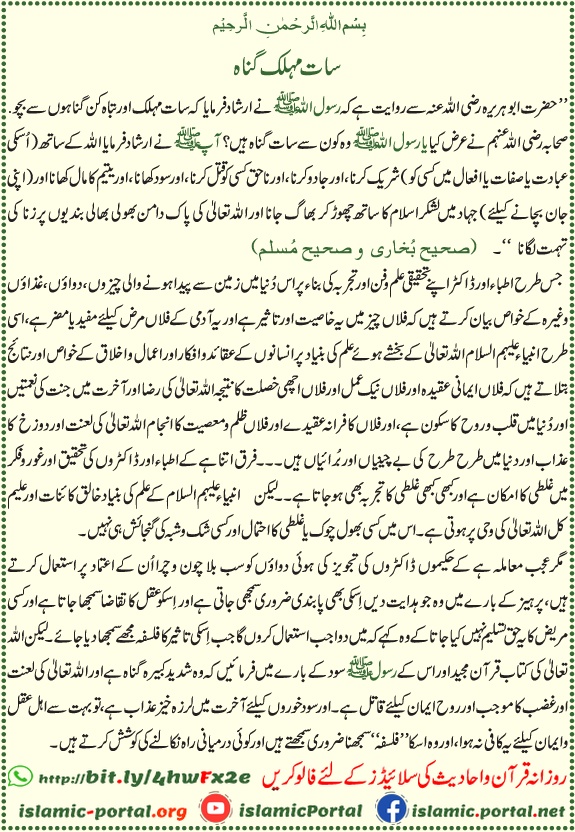 بِسْمِ اللّٰهِ الرَّحْمٰنِ الرَّحِيْمِ
سات مہلک گناہ
’’حضرت ابو ہریرہ رضی اللہ عنہ سے روایت ہے کہ رسول اللہ ﷺ نے ارشاد فرمایا کہ سات مہلک اور تباہ کن گناہوں سے بچو۔
صحابہ رضی اللہ عنہم نے عرض کیا یا رسول اللہ ﷺ وہ کون سے سات گناہ ہیں؟ آپ ﷺ نے ارشاد فرمایا اللہ کے ساتھ (اُسکی
عبادت یا صفات یا افعال میں کسی کو) شریک کرنا، اور جادو کرنا، اور ناحق کسی کو قتل کرنا، اور سود کھانا، اور یتیم کا مال کھانا اور (اپنی
جان بچانے کیلئے) جہاد میں لشکرِ اسلام کا ساتھ چھوڑ کر بھاگ جانا اور اللہ تعالیٰ کی پاک دامن بھولی بھالی بندیوں پر زنا کی
تہمت لگانا ‘‘۔ (صحیح بُخاری و صحیح مُسلم)
جس طرح اطباء اور ڈاکٹر اپنے تحقیقی علم و فن اور تجربہ کی بناء پر اس دُنیا میں زمین سے پیدا ہونے والی چیزوں، دواؤں، غذاؤں
وغیرہ کے خواص بیان کرتے ہیں کہ فلاں چیز میں یہ خاصیت اور تاثیر ہے اور یہ آدمی کے فلاں مرض کیلئے مفید یا مضر ہے، اسی
طرح انبیاء علیہم السلام اللہ تعالیٰ کے بخشے ہوئے علم کی بنیاد پر انسانوں کے عقائد و افکار اور اعمال و اخلاق کے خواص اور نتائج
بتلاتے ہیں کہ فلاں ایمانی عقیدہ اور فلاں نیک عمل اور فلاں اچھی خصلت کا نتیجہ اللہ تعالیٰ کی رضا اور آخرت میں جنت کی نعمتیں
اور دُنیا میں قلب و روح کا سکون ہے، اور فلاں کافرانہ عقیدے اور فلاں ظلم و معصیت کا انجام اللہ تعالیٰ کی لعنت اور دوزخ کا
عذاب اور دنیا میں طرح طرح کی بے چینیاں اور بُرائیاں ہیں ۔۔۔ فرق اتنا ہے کے اطباء اور ڈاکٹروں کی تحقیق اور غور و فکر
میں غلطی کا امکان ہے اور کبھی کبھی غلطی کا تجربہ بھی ہو جاتا ہے۔۔ لیکن انبیاء علیہم السلام کے علم کی بنیاد خالق کائنات اور علیم
کل اللہ تعالیٰ کی وحی پر ہوتی ہے۔ اس میں کسی بھول چوک یا غلطی کا احتمال اور کسی شک و شبہ کی گنجائش ہی نہیں۔
مگر عجب معاملہ ہے کے حکیموں ڈاکٹروں کی تجویز کی ہوئی دواؤں کو سب بلا چون و چرا اُن کے اعتماد پر استعمال کرتے
ہیں، پرہیز کے بارے میں وہ جو ہدایت دیں اِسکی بھی پابندی ضروری سمجھی جاتی ہے اور اِسکو عقل کا تقاضا سمجھا جاتا ہے اور کسی
مریض کا یہ حق تسلیم نہیں کیا جاتا کے وہ کہے کہ میں دوا جب استعمال کروں گا جب اِسکی تاثیر کا فلسفہ مجھے سمجھا دیا جائے۔ لیکن اللہ
تعالیٰ کی کتاب قرآن مجید اور اس کے رسول ﷺ سود کے بارے میں فرمائیں کہ وہ شدید کبیرہ گناہ ہے اور اللہ تعالیٰ کی لعنت
اور غضب کا موجب اور روحِ ایمان کیلئے قاتل ہے۔ اور سود خوروں کیلئے آخرت میں لرزہ خیز عذاب ہے، تو بہت سے اہلِ عقل
و ایمان کیلئے یہ کافی نہ ہوا، اور وہ اسکا ’’فلسفہ‘‘ سمجھنا ضروری سمجھتے ہیں اور کوئی درمیانی راہ نکالنے کی کوشش کرتے ہیں۔
روزانہ قرآن و احادیث کی سلائیڈز کے لئے فالو کریں http://bit.ly/4hwFx2e
islamic-portal.org islamicPortal islamic.portal.net